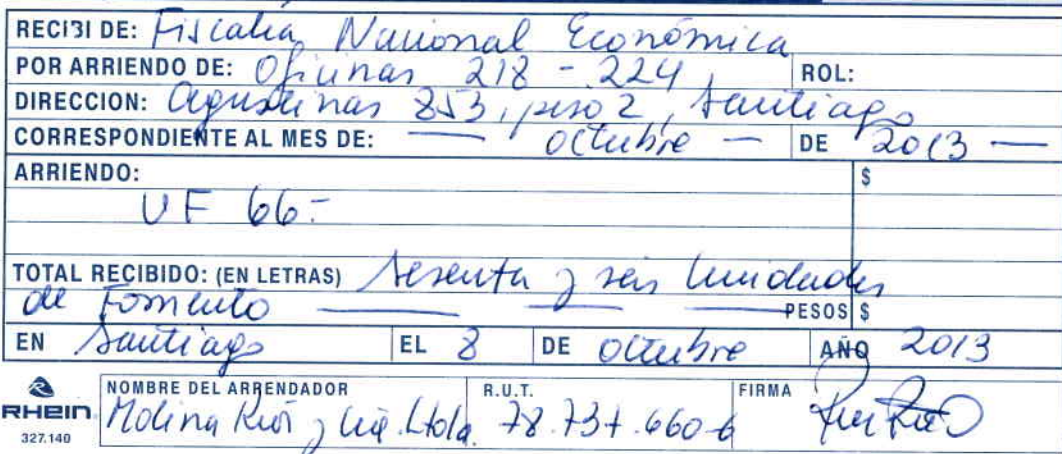 RECIBI DE: Fiscalía Nacional Económica
POR ARRIENDO DE: Oficinas 218 - 224, ROL:
DIRECCION: Agustinas 853, piso 2, Santiago
CORRESPONDIENTE AL MES DE: — octubre — DE 2013 —
ARRIENDO: $
UF 66.-
TOTAL RECIBIDO: (EN LETRAS) Sesenta y seis Unidades
de Fomento — — — PESOS $
EN Santiago EL 8 DE octubre AÑO 2013
NOMBRE DEL ARRENDADOR R.U.T. FIRMA
RHEIN Molina Ríos y Cía. Ltda. 78.737.660-6
327.140